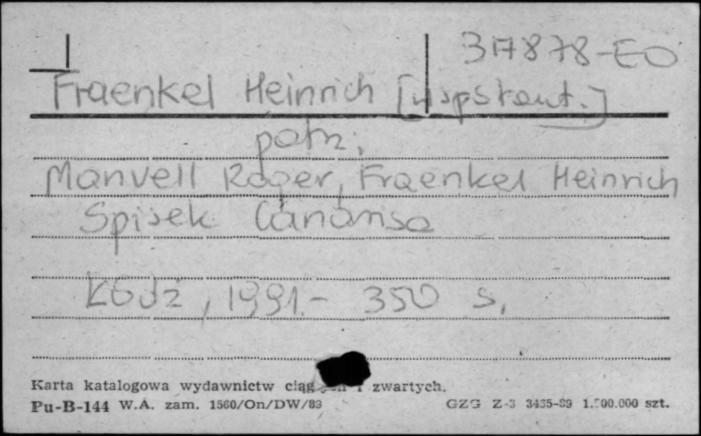 317878-EO
Fraenkel Heinrich [współaut.]
patrz:
Manvell Roger, Fraenkel Heinrich
Spisek Canarisa
Łódź, 1991.- 350 s.
Karta katalogowa wydawnictw ciąg i zwartych.
Pu-B-144 W.A. zam. 1560/On/DW/89 GZG Z-3 3435-89 1.500.000 szt.